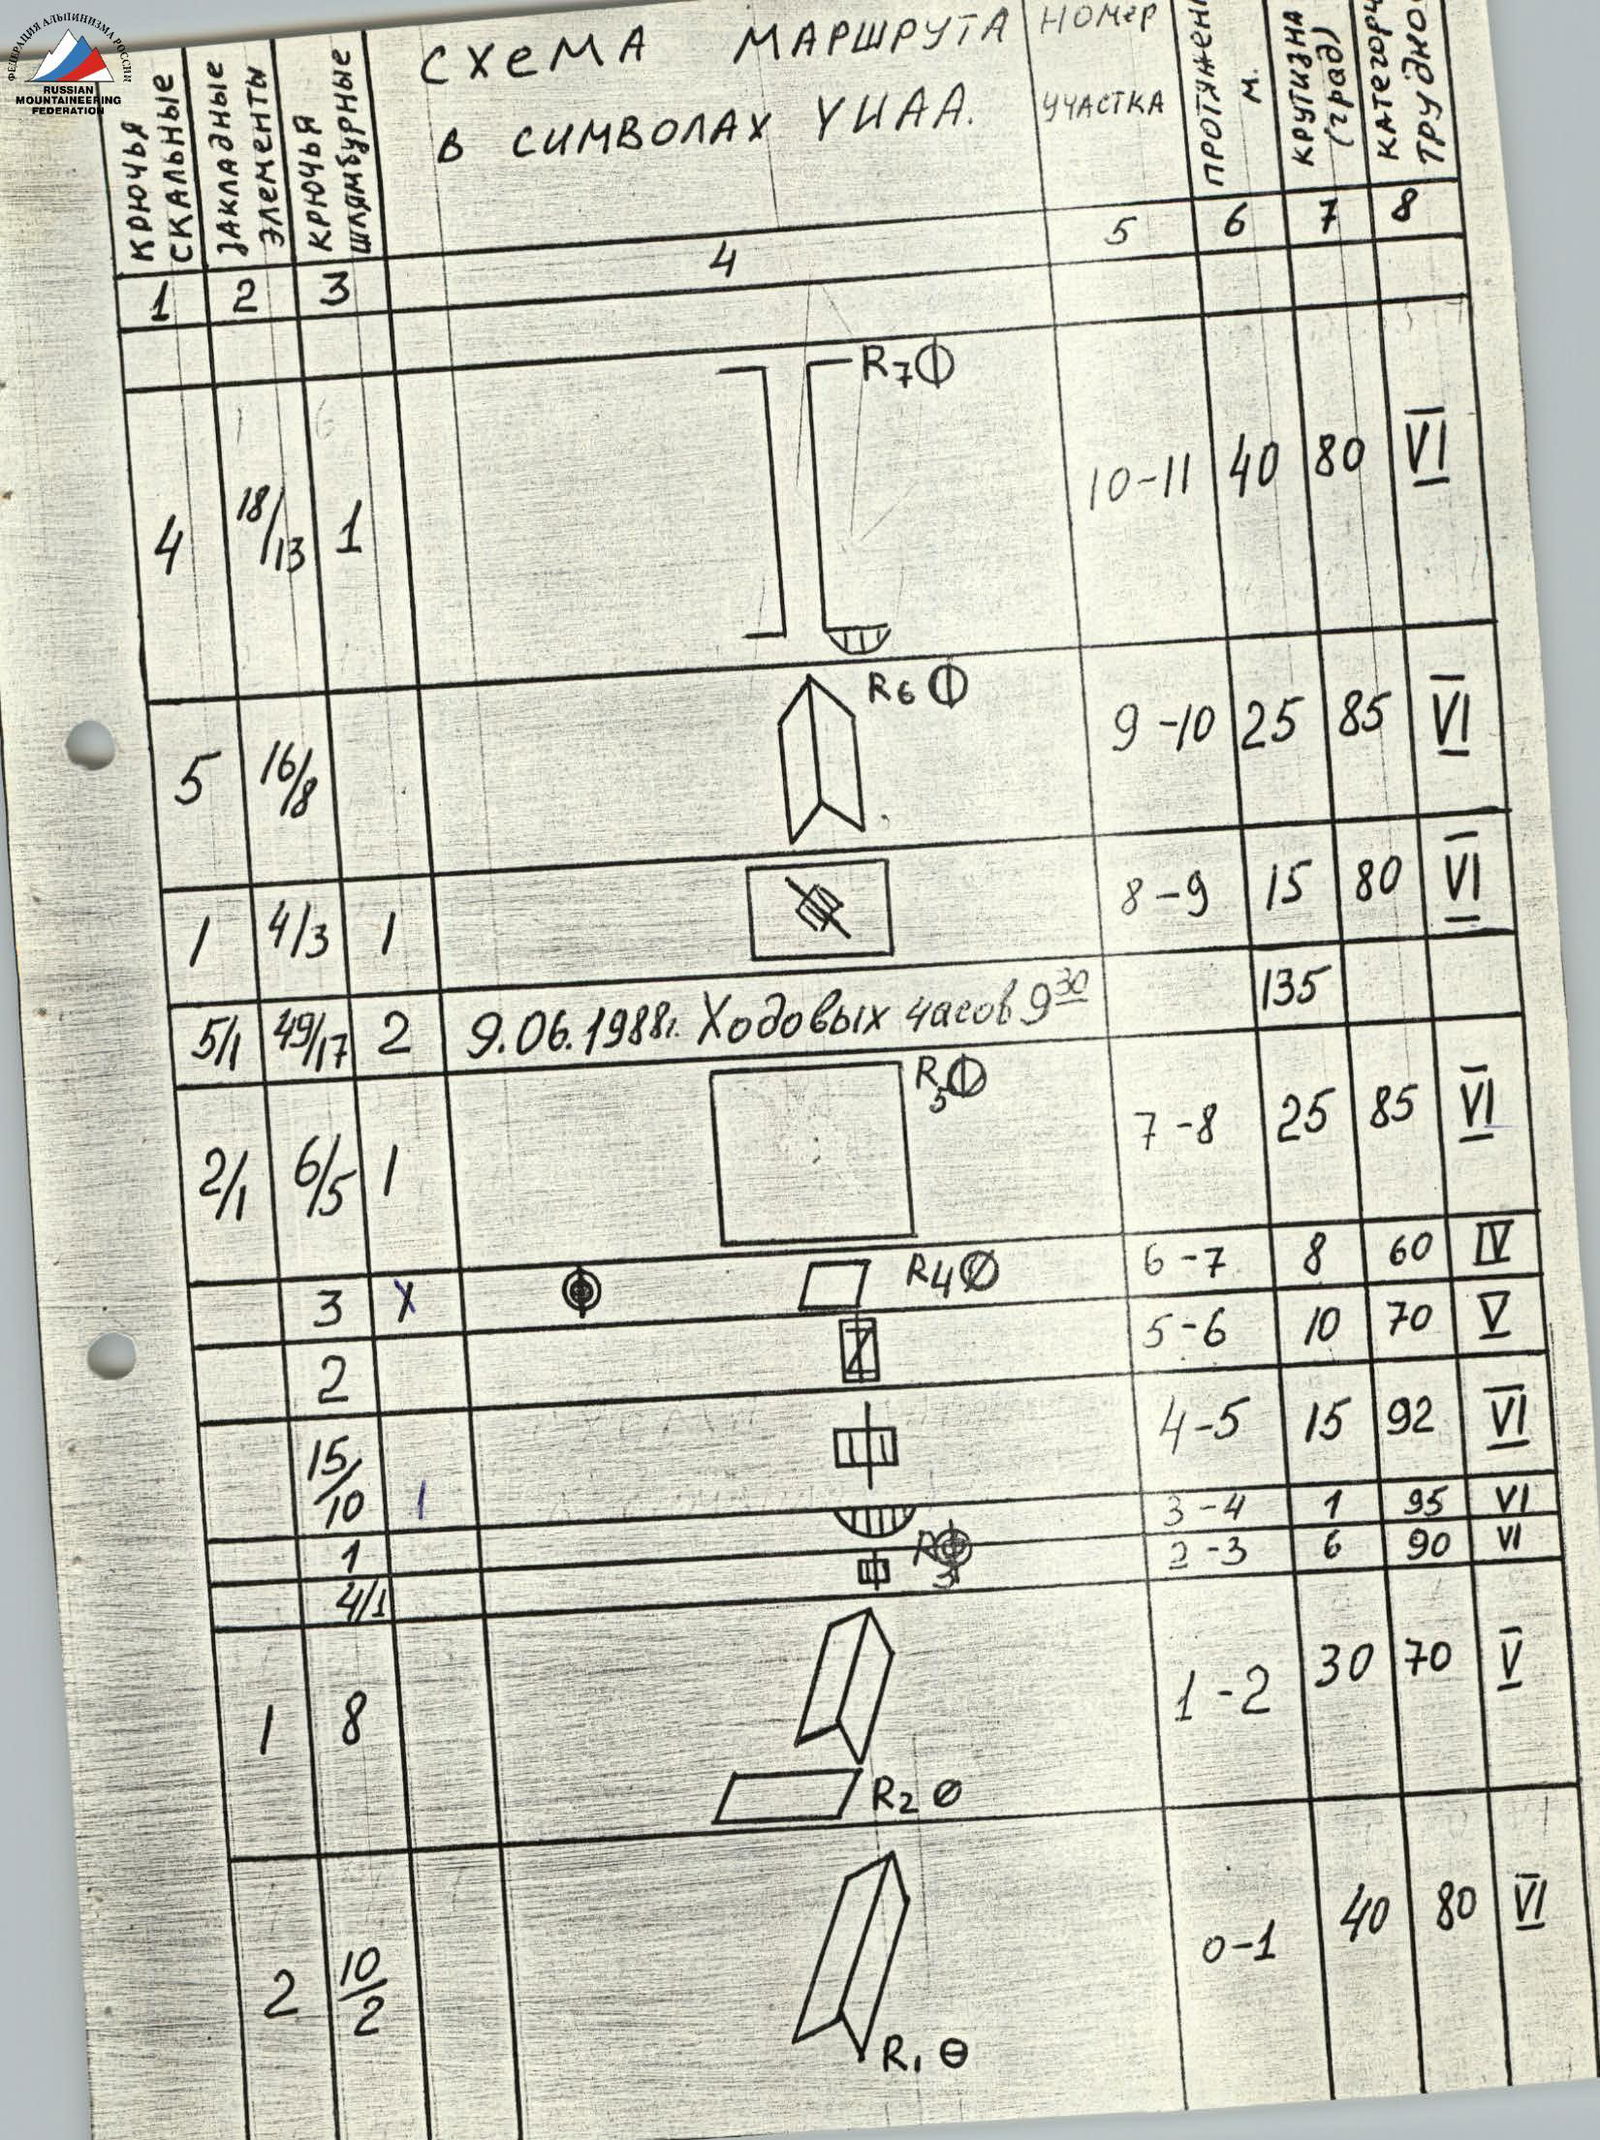 ФЕДЕРАЦИЯ АЛЬПИНИЗМА РОССИИ
RUSSIAN
MOUNTAINEERING
FEDERATION
КРЮЧЬЯ СКАЛЬНЫЕ
ЗАКЛАДНЫЕ ЭЛЕМЕНТЫ
КРЮЧЬЯ ШЛЯМБУРНЫЕ
СХЕМА МАРШРУТА
В СИМВОЛАХ УИАА.
НОМЕР
УЧАСТКА
М.
КРУТИЗНА (град)
1 2 3 4 5 6 7 8
4 18/13 1 R7 10-11 40 80 VI
5 16/8 R6 9-10 25 85 VI
1 4/3 1 8-9 15 80 VI
5/1 49/17 2 9.06.1988г. Ходовых часов 9 30 135
2/1 6/5 1 R5 7-8 25 85 VI
3 R4 6-7 8 60 IV
2 5-6 10 70 V
15/10 1 4-5 15 92 VI
1 3-4 1 95 VI
4/1 R3 2-3 6 90 VI
1 8 1-2 30 70 V
R2
2 10/2 0-1 40 80 VI
R1